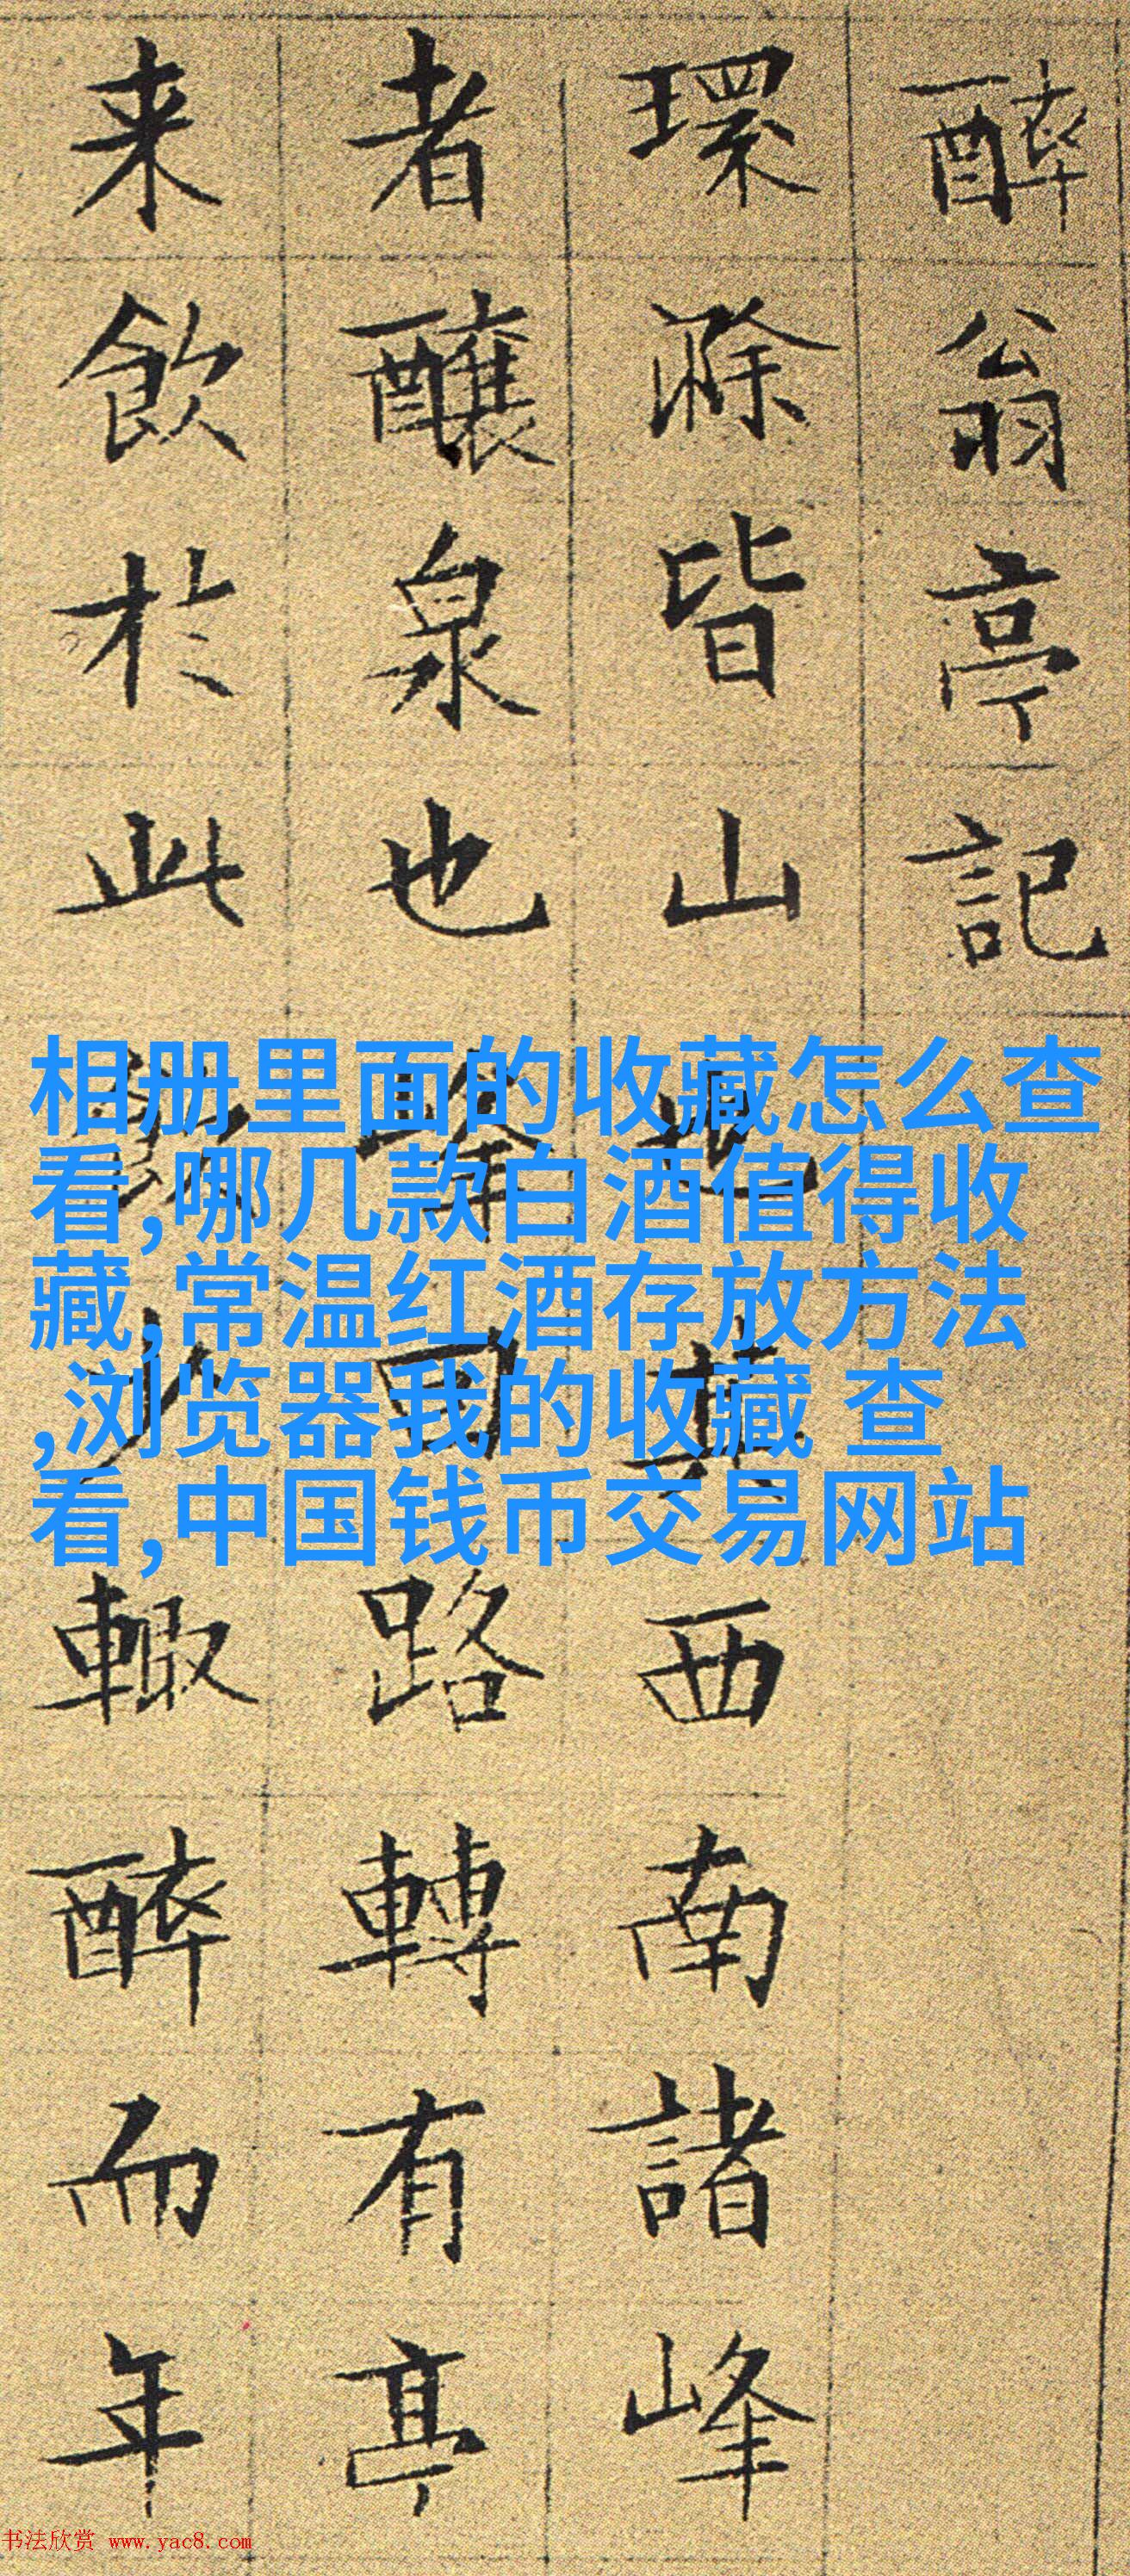 醉翁亭記
環滁皆山也其西南諸峰
者釀泉也峯回路轉有亭
来飲於此飲少輙醉而年
相册里面的收藏怎么查
看,哪几款白酒值得收
藏,常温红酒存放方法
,浏览器我的收藏 查
看,中国钱币交易网站
书法欣赏 www.yac8.com